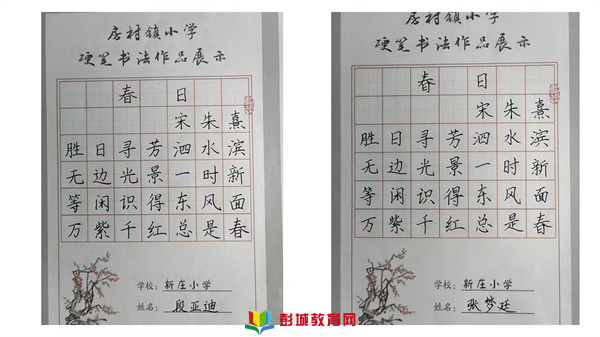 房村镇小学
硬笔书法作品展示
春日
宋朱熹
胜日寻芳泗水滨
无边光景一时新
等闲识得东风面
万紫千红总是春
学校：新庄小学
姓名：段亚迪
房村镇小学
硬笔书法作品展示
春日
宋朱熹
胜日寻芳泗水滨
无边光景一时新
等闲识得东风面
万紫千红总是春
学校：新庄小学
姓名：张梦廷
彭城教育网